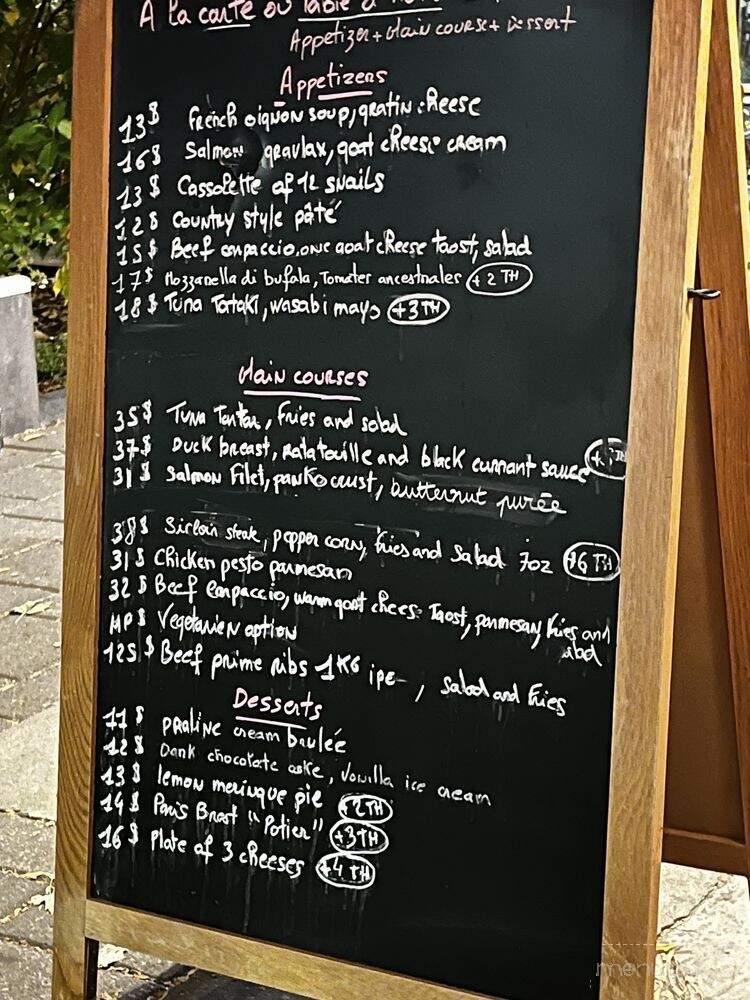 A la carte ou Table d'
Appetizer + Main course + Dessert
Appetizers
13$ French oignon soup, gratin cheese
16$ Salmon gravlax, goat cheese cream
13$ Cassolette of 12 snails
12$ Country style pâté
15$ Beef carpaccio, one goat cheese toast, salad
17$ Mozzarella di bufala, Tomates ancestrales +2 TH
18$ Tuna Tataki, wasabi mayo +3 TH
Main courses
35$ Tuna Tartar, fries and salad
37$ Duck breast, ratatouille and black currant sauce
31$ Salmon Filet, panko crust, butternut purée
38$ Sirloin steak, pepper corn, fries and salad 7oz $6 TH
31$ Chicken pesto parmesan
32$ Beef carpaccio, warm goat cheese Toast, parmesan, fries and
salad
MP$ Vegetarien option
125$ Beef prime ribs 1KG, salad and fries
Desserts
11$ Praline cream brulée
12$ Dark chocolate cake, Vanilla ice cream
13$ lemon meringue pie +2 TH
14$ Paris Brest "Potier" +3 TH
16$ Plate of 3 cheeses +4 TH